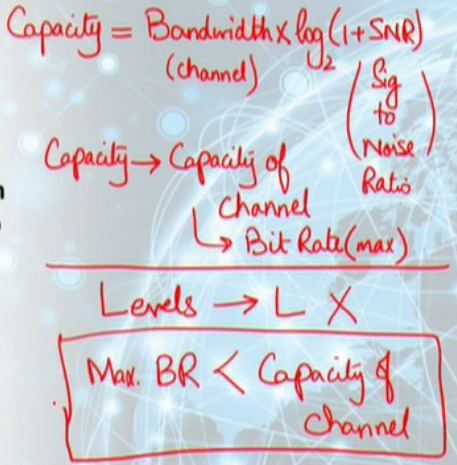 Capacity = Bandwidth x log₂(1+SNR)
(channel)
(Sig
to
Noise
Ratio)
Capacity → Capacity of
channel
↳ Bit Rate(max)
Levels → L X
Max. BR < Capacity of
channel